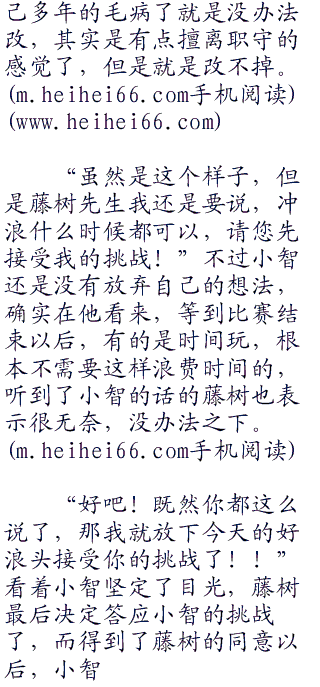 己多年的毛病了就是没办法
改，其实是有点擅离职守的
感觉了，但是就是改不掉。
(m.heihei66.com手机阅读)
(www.heihei66.com)
“虽然是这个样子，但
是藤树先生我还是要说，冲
浪什么时候都可以，请您先
接受我的挑战！”不过小智
还是没有放弃自己的想法，
确实在他看来，等到比赛结
束以后，有的是时间玩，根
本不需要这样浪费时间的，
听到了小智的话的藤树也表
示很无奈，没办法之下。
(m.heihei66.com手机阅读)
“好吧！既然你都这么
说了，那我就放下今天的好
浪头接受你的挑战了！！”
看着小智坚定了目光，藤树
最后决定答应小智的挑战
了，而得到了藤树的同意以
后，小智